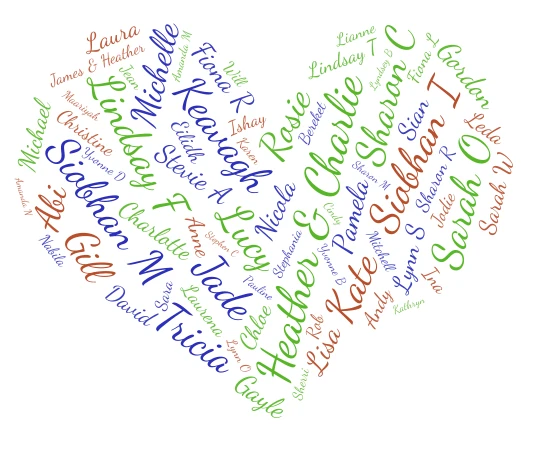 Laura
James & Heather
Jean
Michelle
Amanda M
Fiona R
Will
Lianne
Lindsay T
Lyndsey B
Sharon C
Fiona L
Gordon
Michael
Maariyah
Christine
Lindsay F
Keavagh
Ishay
Karen
Rosie
Bereket
Charlie
Sian
Siobhan I
Leda
Yvonne D
Eilidh
Stevie A
Siobhan M
Amanda N
Abi
Nabila
Gill
Charlotte
Anne
Stephen C
Lucy
Nicola
Stephanie
Heather &
Cindy
Sharon M
Pamela
Yvonne B
Mitchell
Sharon R
Jodie
Sarah O
Sarah W
Lynn S
Ina
Kathryn
Andy
Kate
Rob
Lisa
Sherri
Pauline
Chloe
Jade
Laurena
Sara
David
Tricia
Lynn O
Gayle